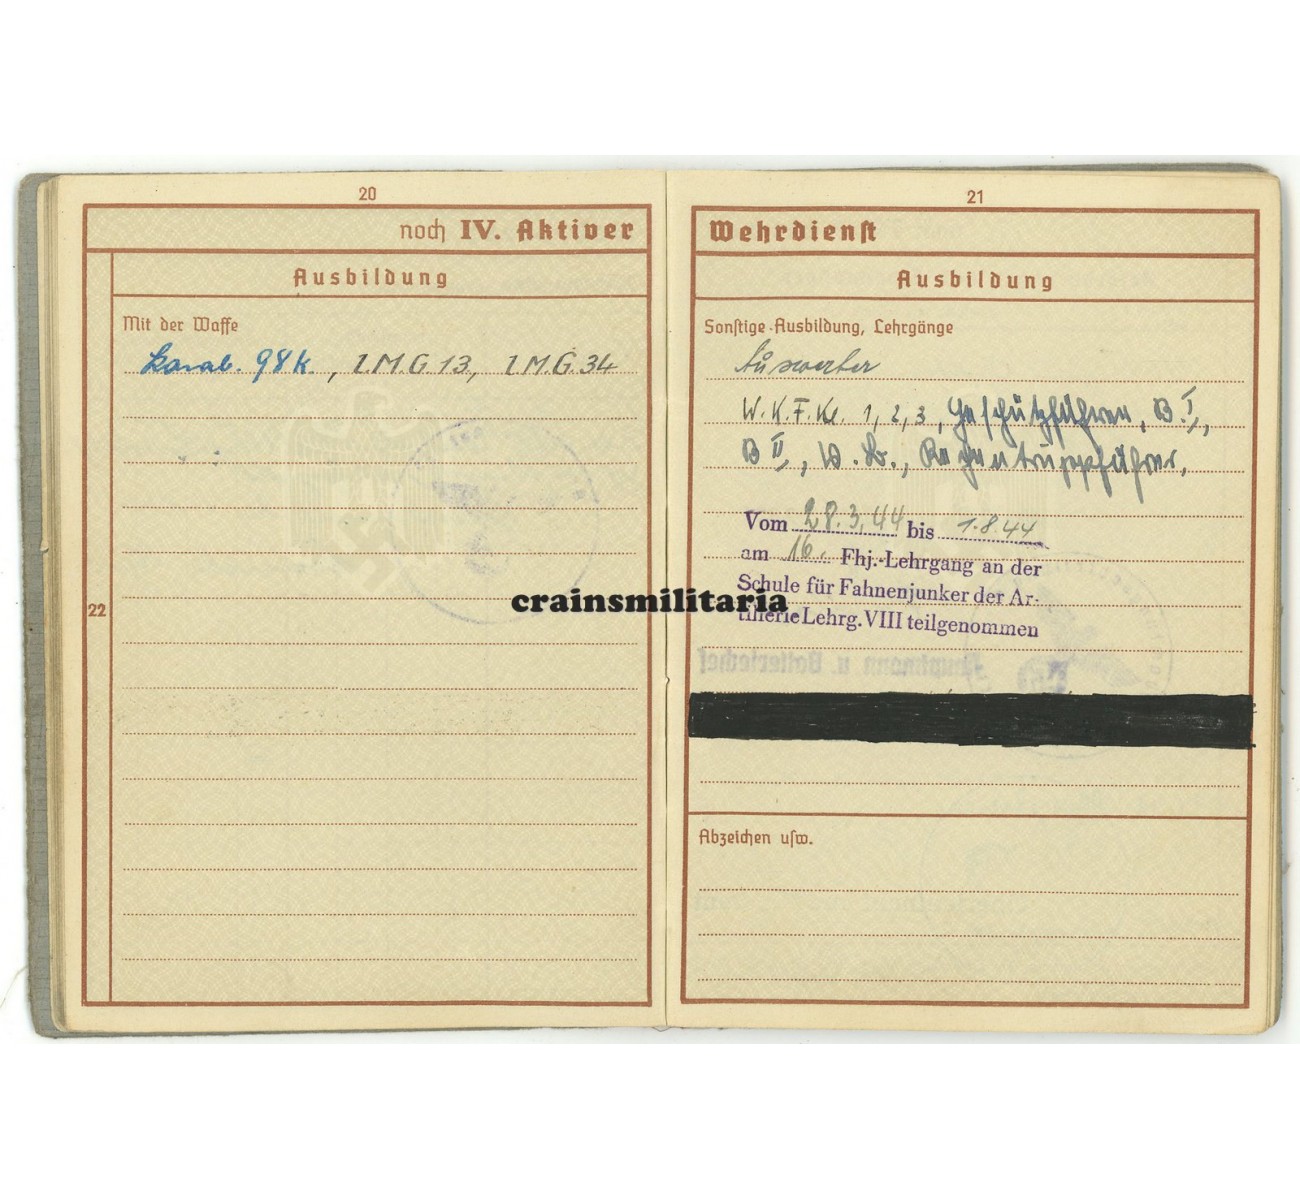 20
noch IV. Aktiver
Ausbildung
Mit der Waffe
Karab. 98k., l.M.G. 13, l.M.G. 34
22
crainsmilitaria
21
Wehrdienst
Ausbildung
Sonstige Ausbildung, Lehrgänge
Auswerter
W.K.F.Kl. 1, 2, 3, Geschützführer, B I,
B II, Rechentruppführer.
Vom 28.3.44 bis 1.8.44
am 16. Fhj.-Lehrgang an der
Schule für Fahnenjunker der Ar-
tillerie Lehrg. VIII teilgenommen
Hauptmann u. Batteriechef
Abzeichen usw.